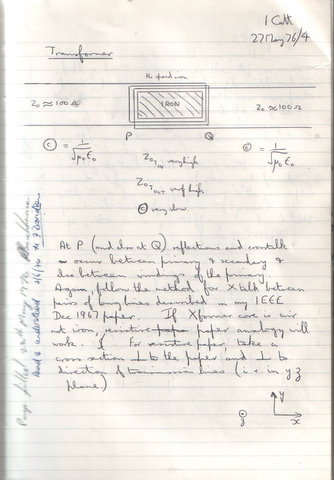 I Catt
27 May 76/4
Transformer
Hi speed iron
Z₀ ≈ 100 Ω
IRON
Z₀ ≈ 100 Ω
P
Q
Ⓒ = 1/√μ₀ε₀
Z₀ IN very high
Ⓒ = 1/√μ₀ε₀
Z₀ OUT very high
Ⓒ very slow
At P (and also at Q) reflections and crosstalk
occur between primary & secondary &
also between windings of the primary.
Again follow the method for X talk between
pairs of long lines described in my IEEE
Dec 1967 paper. If Xformer core is air
not iron, resistive paper analogy will
work. For resistive paper, take a
cross section ⊥ to the paper and ⊥ to
direction of transmission lines (i.e. in y z
plane)
y
z
x
Page filed 28th May 1976
Read & understood 2/6/76